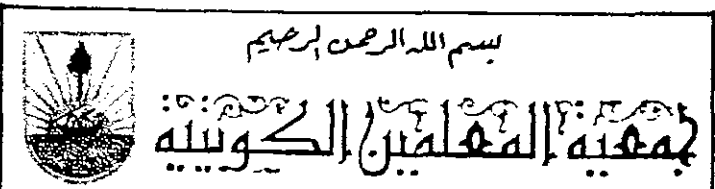 بسم الله الرحمن الرحيم
جمعية المعلمين الكويتية